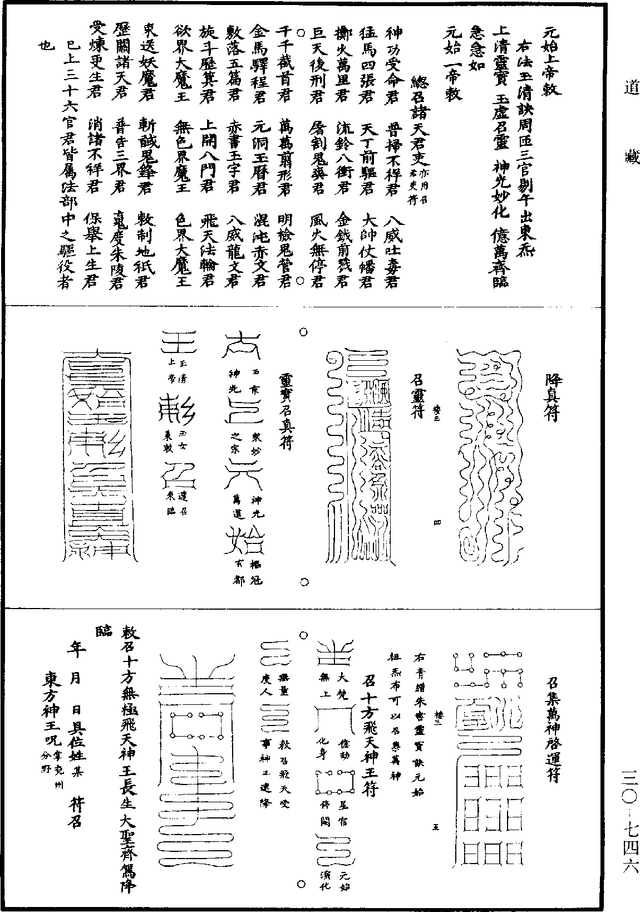 道藏
元始上帝敕
右法玉清訣周匝三官剔午出東炁
上清靈寶 玉虛召靈 神光妙化 億萬齊臨
急急如
元始一帝敕
總召諸天君吏亦用召君吏符
神功受命君 普掃不祥君 八威吐毒君
猛馬四張君 天丁前驅君 大帥仗旛君
擲火萬里君 流鈴八衝君 金鉞前戮君
巨天後刑君 屠割鬼爽君 風火無停君
千千截首君 萬萬剪形君 明檢鬼營君
金馬驛程君 元洞玉曆君 混沌赤文君
敷落五篇君 赤書玉字君 八威龍文君
旋斗歷箕君 上開八門君 飛天法輪君
欲界大魔王 無色界魔王 色界大魔王
束送妖魔君 斬馘鬼鋒君 敕制地祇君
歷關諸天君 普告三界君 亶度朱陵君
受煉更生君 消諸不祥君 保舉上生君
已上三十六官君皆屬法部中之驅役者
也
降真符
樓三
四
召靈符
靈寶召真符
玉京神光
眾妙之宗
神光萬道
樞冠玄都
玉清上帝
玉女稟敕
速召來臨
召集萬神啓運符
右青繒朱書靈寶訣元始
祖炁布可以召集萬神
樓三
五
召十方飛天神王符
大梵無上
億劫化身
星宿停關
元始演化
無量度人
敕召飛天受
事神王速降
敕召十方無極飛天神王長生大聖齊駕降
臨
年 月 日具位姓某 符召
東方神王呪掌兗州分野
三〇-七四六